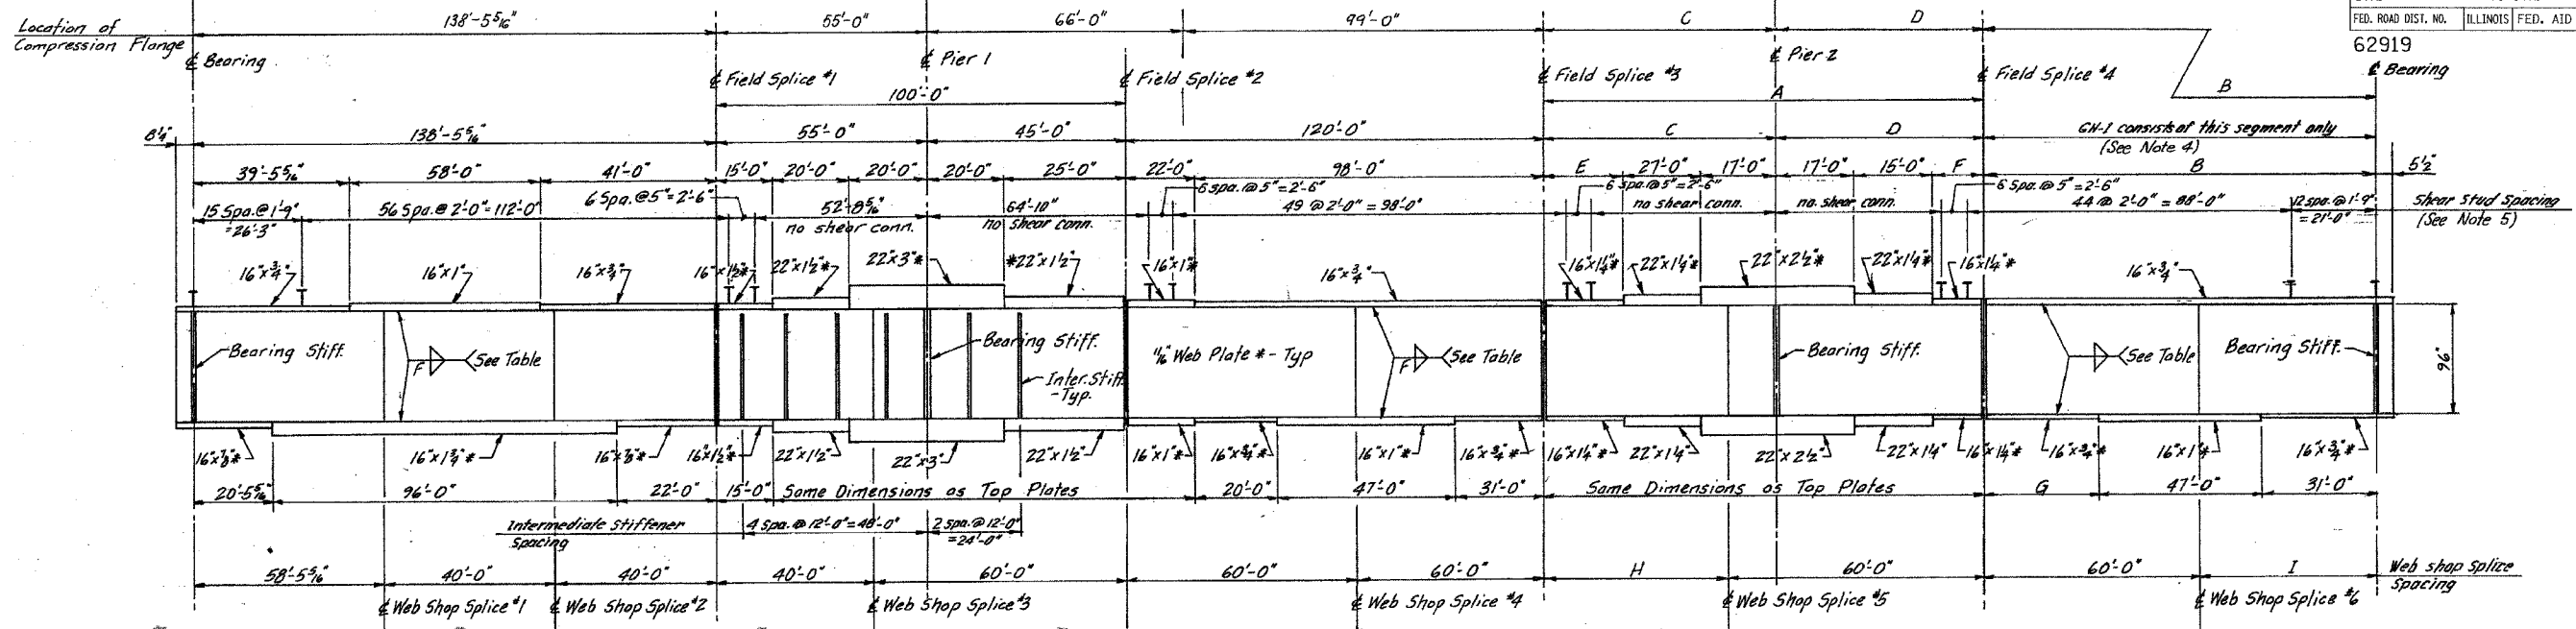 FED. ROAD DIST. NO. ILLINOIS FED. AID
62919
Location of
Compression Flange
138'-5 5/16" 55'-0" 66'-0" 99'-0" C D
℄ Bearing ℄ Field Splice #1 ℄ Pier 1 ℄ Field Splice #2 ℄ Field Splice #3 ℄ Pier 2 ℄ Field Splice #4 ℄ Bearing
100'-0" A B
8¼" 138'-5 5/16" 55'-0" 45'-0" 120'-0" C D GN-1 consists of this segment only
(See Note 4)
39'-5 5/16" 58'-0" 41'-0" 15'-0" 20'-0" 20'-0" 20'-0" 25'-0" 22'-0" 98'-0" E 27'-0" 17'-0" 17'-0" 15'-0" F B 5½"
6 Spa. @ 5" = 2'-6" 6 spa. @ 5" = 2'-6" 6 spa. @ 5" = 2'-6" 6 Spa. @ 5" = 2'-6"
15 Spa. @ 1'-9" 56 Spa. @ 2'-0" = 112'-0" 52'-8 5/16" 64'-10" 49 @ 2'-0" = 98'-0" no shear conn. no shear conn. 44 @ 2'-0" = 88'-0" 12 spa. @ 1'-9" Shear Stud Spacing
= 26'-3" no shear conn. no shear conn. = 21'-0" (See Note 5)
16"x¾" 16"x1" 16"x¾" 16"x1½"* 22"x1½"* 22"x3"* *22"x1½" 16"x1"* 16"x¾" 16"x1¼"* 22"x1¼"* 22"x2½"* 22"x1¼"* 16"x1¼"* 16"x¾"
Bearing Stiff. F See Table Bearing Stiff. 11/16" Web Plate * - Typ F See Table Bearing Stiff. See Table Bearing Stiff. 96"
Inter. Stiff.
-Typ.
16"x⅞"* 16"x1¾"* 16"x⅞"* 16"x1½"* 22"x1½" 22"x3" 22"x1½" 16"x1"* 16"x¾"* 16"x1"* 16"x¾"* 16"x1¼"* 22"x1¼" 22"x2½" 22"x1¼" 16"x1¼"* 16"x¾"* 16"x1"* 16"x¾"*
20'-5 5/16" 96'-0" 22'-0" 15'-0" Same Dimensions as Top Plates 20'-0" 47'-0" 31'-0" Same Dimensions as Top Plates G 47'-0" 31'-0"
Intermediate Stiffener 4 Spa. @ 12'-0" = 48'-0" 2 spa. @ 12'-0"
Spacing = 24'-0"
58'-5 5/16" 40'-0" 40'-0" 40'-0" 60'-0" 60'-0" 60'-0" H 60'-0" 60'-0" I Web shop Splice
Spacing
℄ Web Shop Splice #1 ℄ Web Shop Splice #2 ℄ Web Shop Splice #3 ℄ Web Shop Splice #4 ℄ Web Shop Splice #5 ℄ Web Shop Splice #6